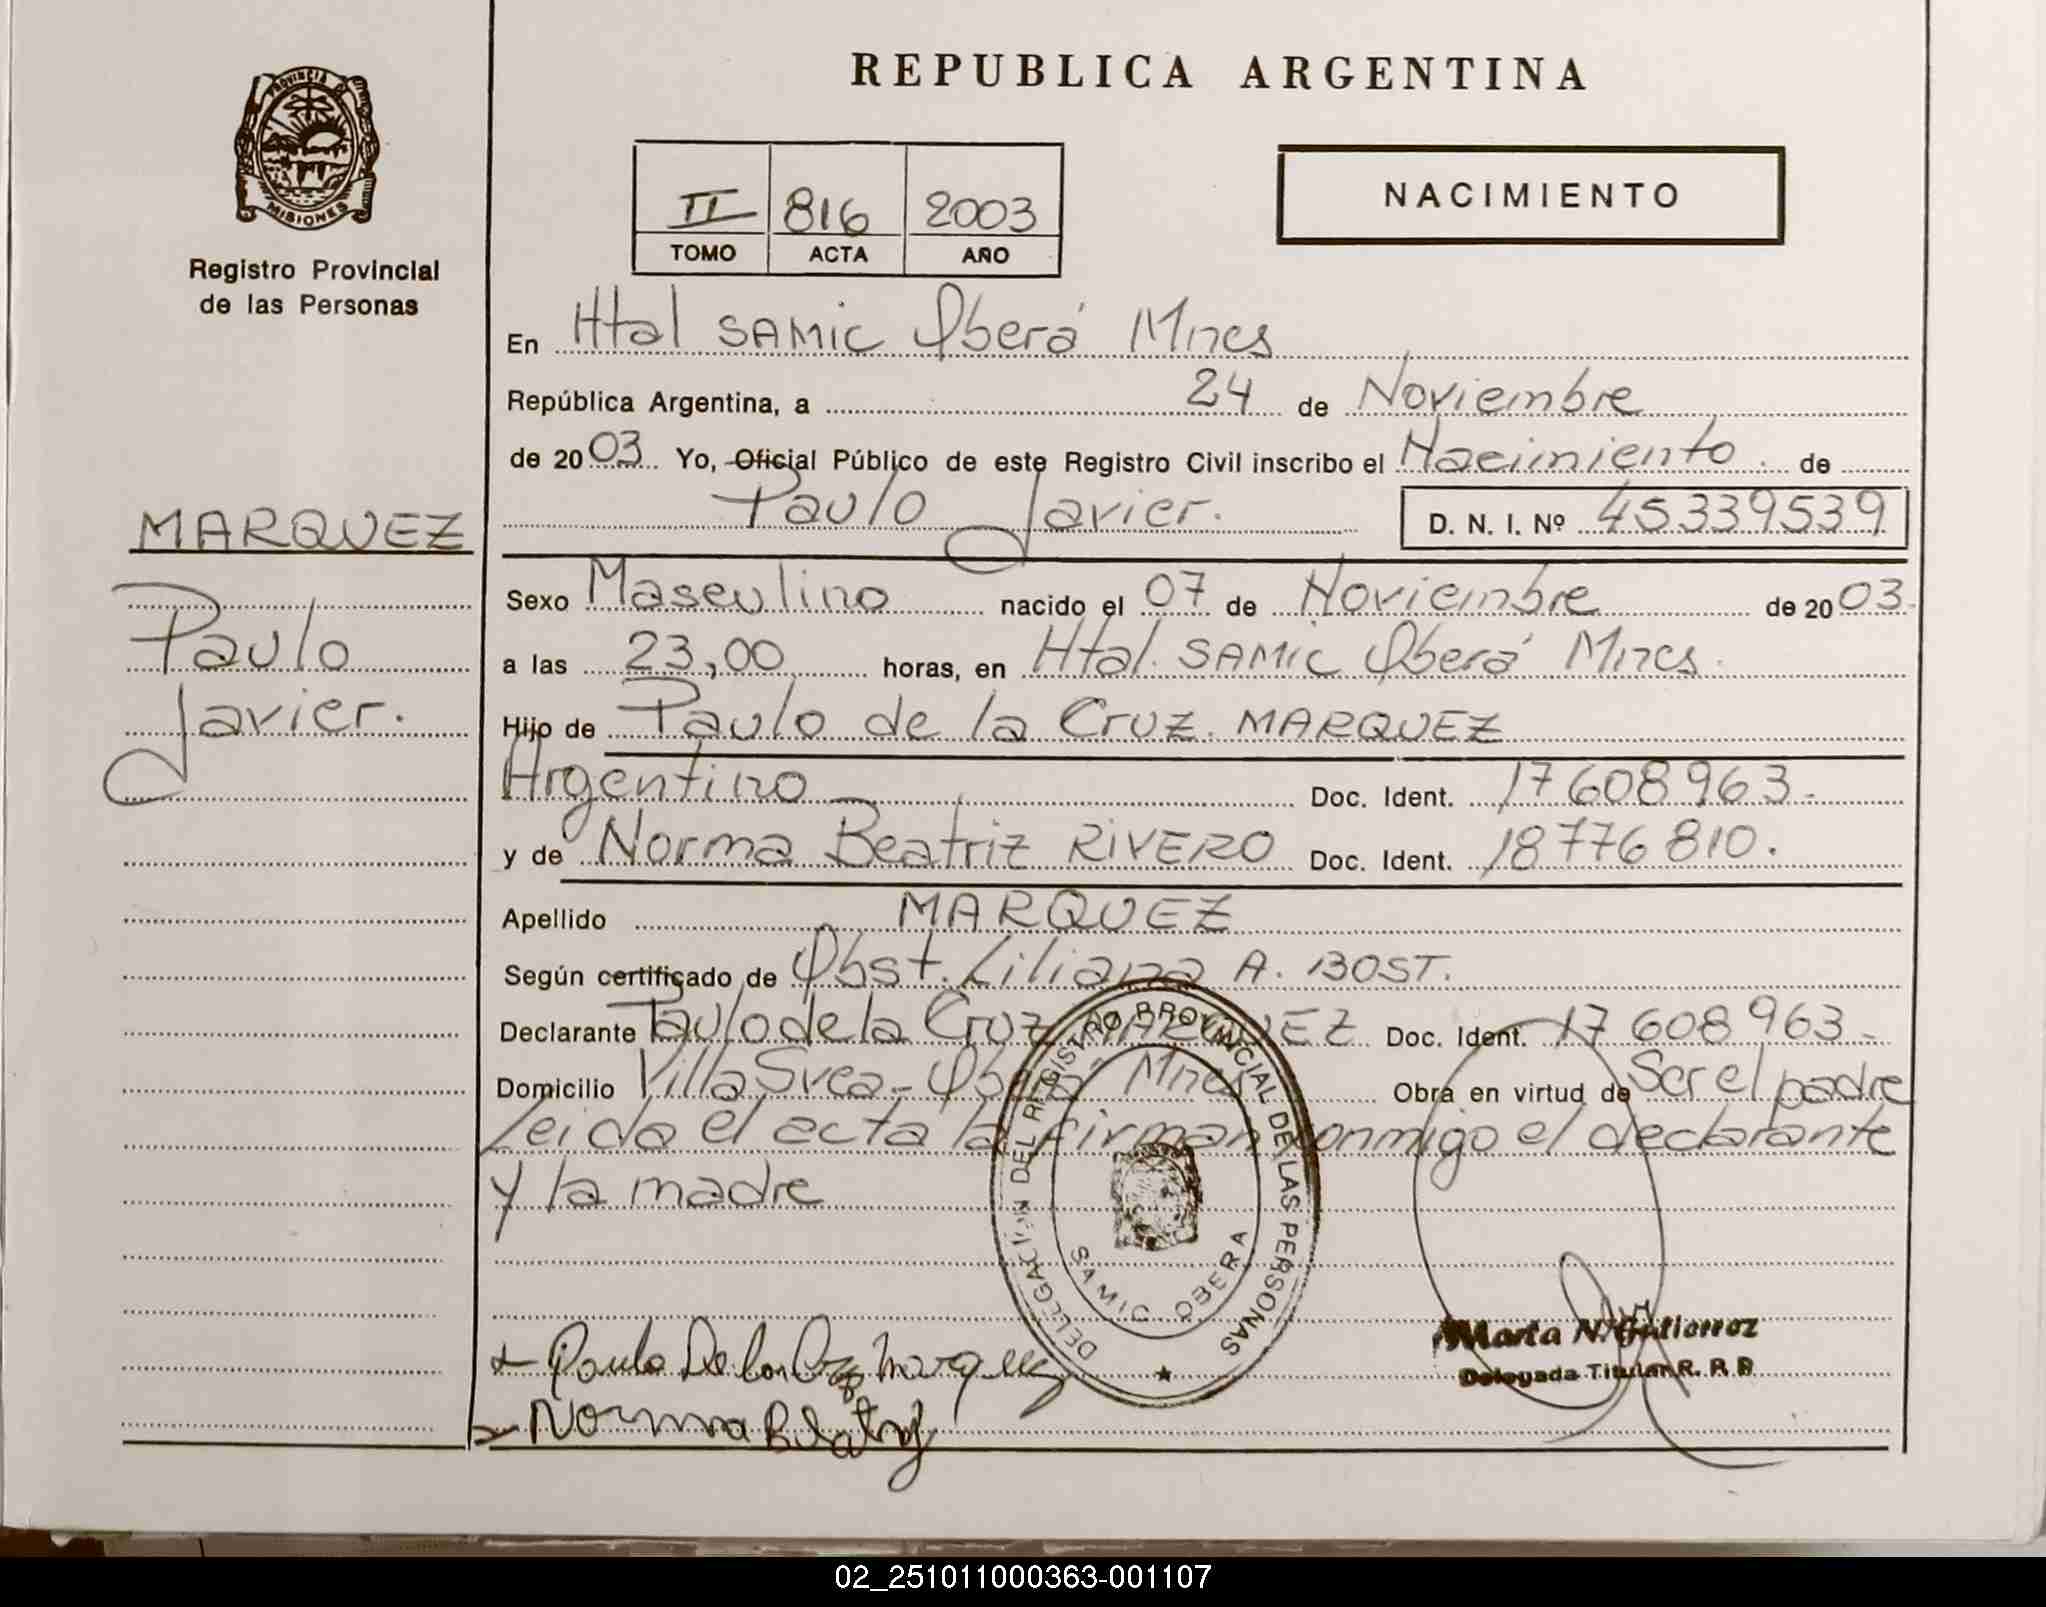 REPUBLICA ARGENTINA
PROVINCIA DE MISIONES
Registro Provincial
de las Personas
II 816 2003
TOMO ACTA AÑO
NACIMIENTO
En Htal SAMIC Oberá Mnes
República Argentina, a 24 de Noviembre
de 2003 Yo, Oficial Público de este Registro Civil inscribo el Nacimiento de
Paulo Javier. D. N. I. Nº 45339539
MARQUEZ
Paulo
Javier.
Sexo Masculino nacido el 07 de Noviembre de 2003.
a las 23,00 horas, en Htal. SAMIC Oberá Mnes.
Hijo de Paulo de la Cruz MARQUEZ
Argentino Doc. Ident. 17608963.
y de Norma Beatriz RIVERO Doc. Ident. 18776810.
Apellido MARQUEZ
Según certificado de Obst. Liliana A. BOST.
Declarante Paulo de la Cruz MARQUEZ Doc. Ident. 17608963.
Domicilio Villa Svea - Oberá Mnes Obra en virtud de Ser el padre
Leida el acta la firman conmigo el declarante
y la madre
DELEGACION DEL REGISTRO PROVINCIAL DE LAS PERSONAS
SAMIC OBERA
Paulo De la Cruz Marquez
Norma Beatriz
Marta N. Gutierrez
Delegada Titular R. P. P.
02_251011000363-001107